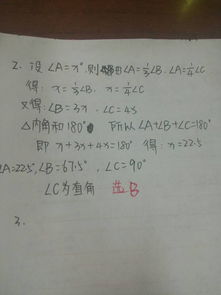 2. 设∠A=x°,则由∠A=1/3∠B,∠A=1/4∠C
得: x=1/3∠B, x=1/4∠C
又得:∠B=3x,∠C=4x
△内角和180° 所以∠A+∠B+∠C=180°
即 x+3x+4x=180° 得: x=22.5
∠A=22.5°,∠B=67.5°,∠C=90°
∠C为直角 选B
3.